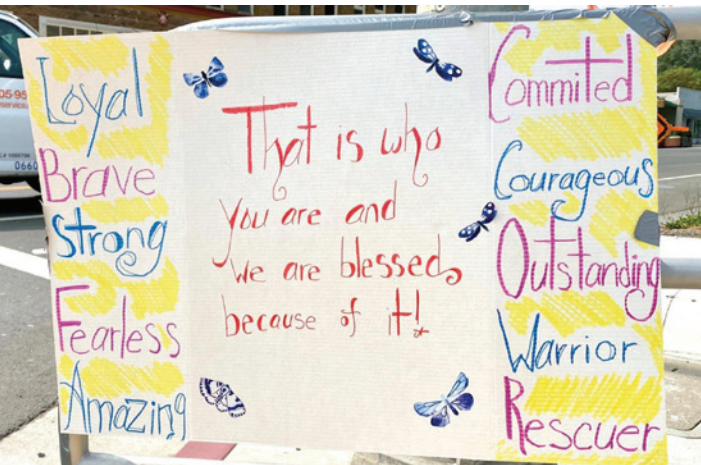 Loyal
Brave
Strong
Fearless
Amazing
That is who
you are and
we are blessed
because of it!
Commited
Courageous
Outstanding
Warrior
Rescuer
05-95
0660